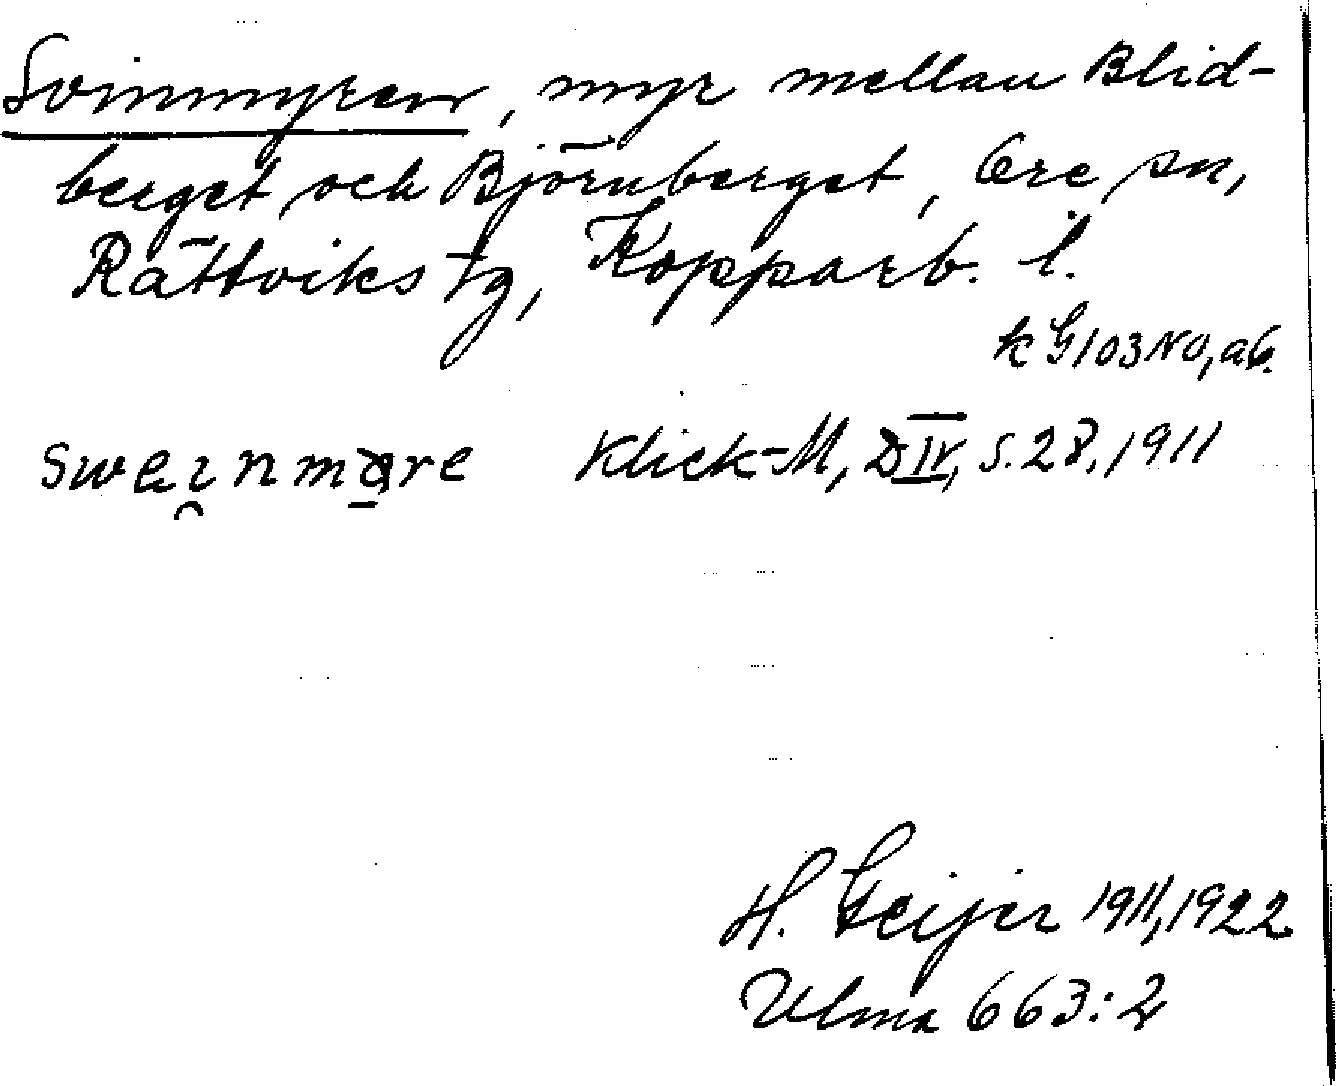 Svinmyren, myr mellan Blid-
berget och Björnberget, Ore sn,
Rättviks tg, Kopparb. l.
k G103NO, ab.
Klick-M, D IV, s. 28, 1911
H. Geijer 1911, 1922
Ulma 663:2